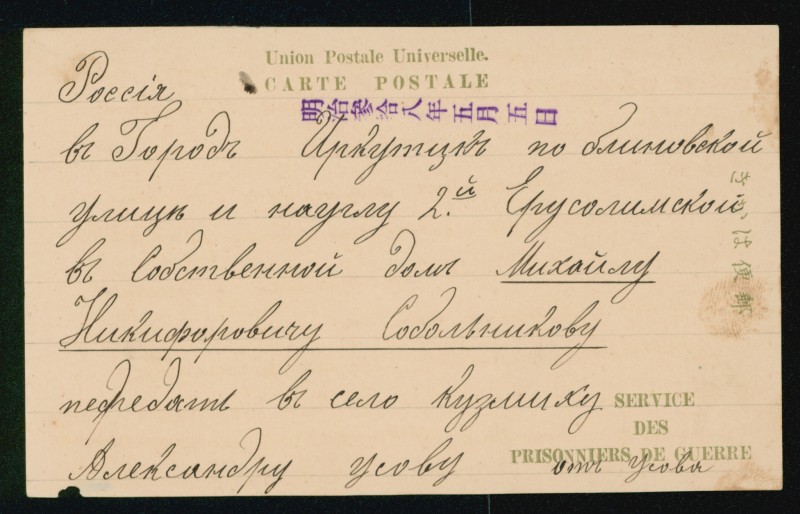 Union Postale Universelle.
CARTE POSTALE
明治參拾八年五月五日
Россія
въ Городъ Иркутцкъ по блиновской
улицѣ и науглу 2.й Ерусолимской
въ Собственной домъ Михайлу
Никифоровичу Собольникову
передать въ село Кузмиху
Александру Усову отъ Усова
きがは便郵
SERVICE
DES
PRISONNIERS DE GUERRE